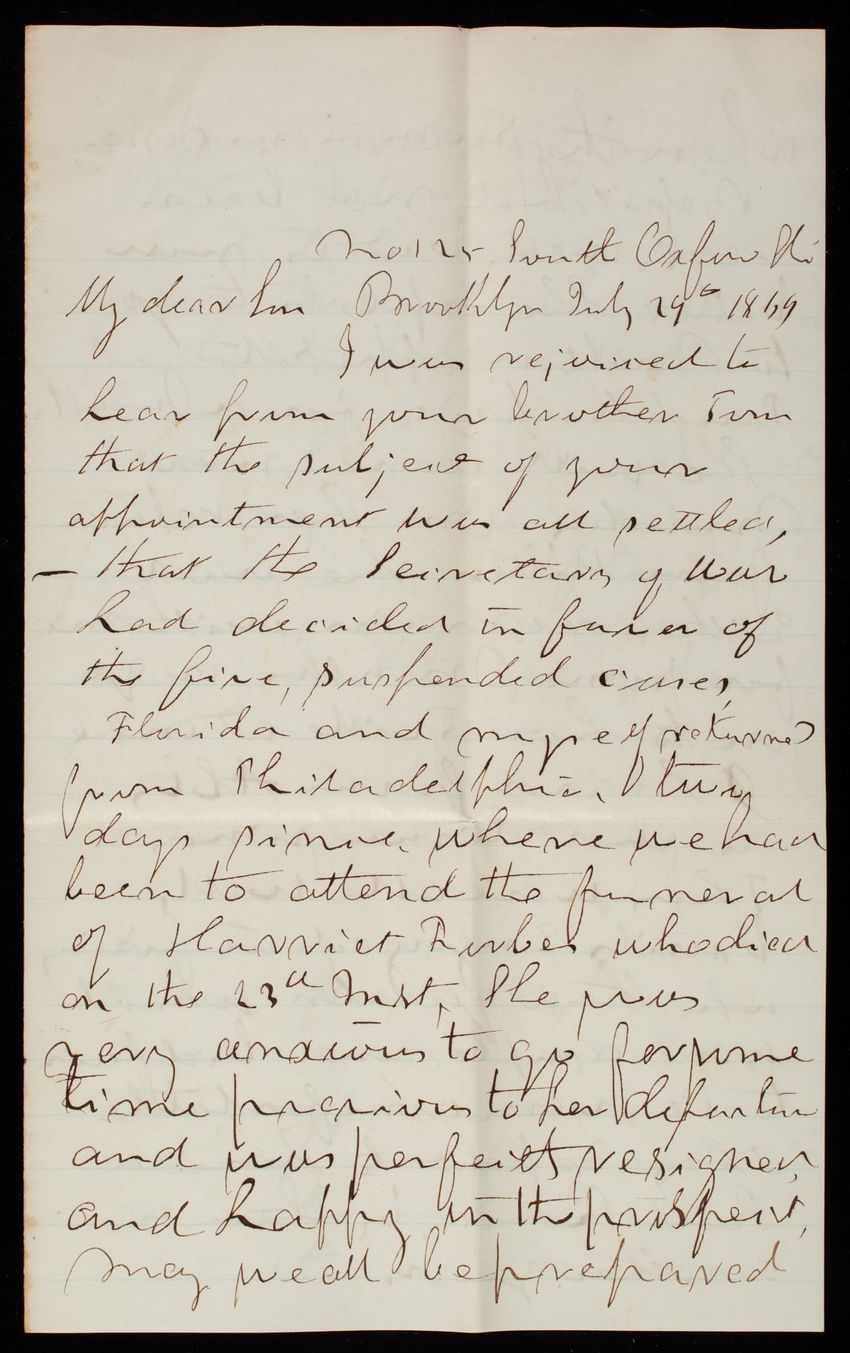 No 125 South Oxford St
My dear Son Brooklyn July 29th 1869
I was rejoiced to
hear from your brother Tom
that the subject of your
appointment was all settled,
– that the Secretary of War
had decided in favor of
the five, suspended cases,
Florida and myself returned
from Philadelphia, two
days since, where we had
been to attend the funeral
of Harriet Forbes who died
on the 23th Inst, She was
very anxious to go for some
time previous to her departure
and was perfectly resigned,
and happy in the prospect,
may we all be prepared